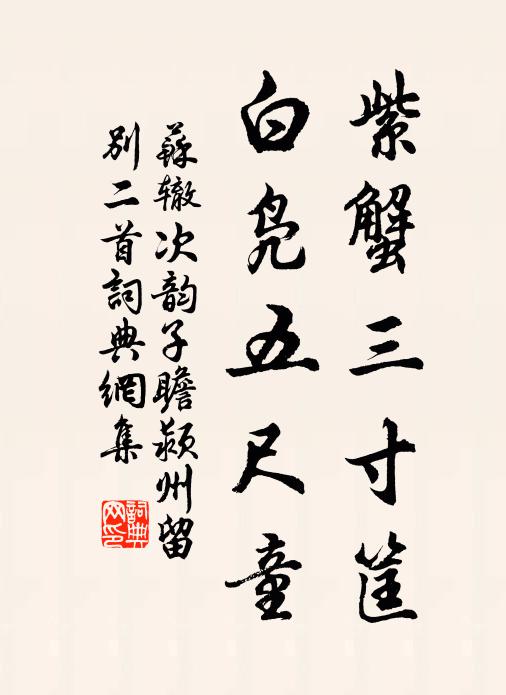 紫蟹三寸筐
白凫五尺童
蘇辙次韵子瞻颍州留
别二首詞典網集
詞典
网印